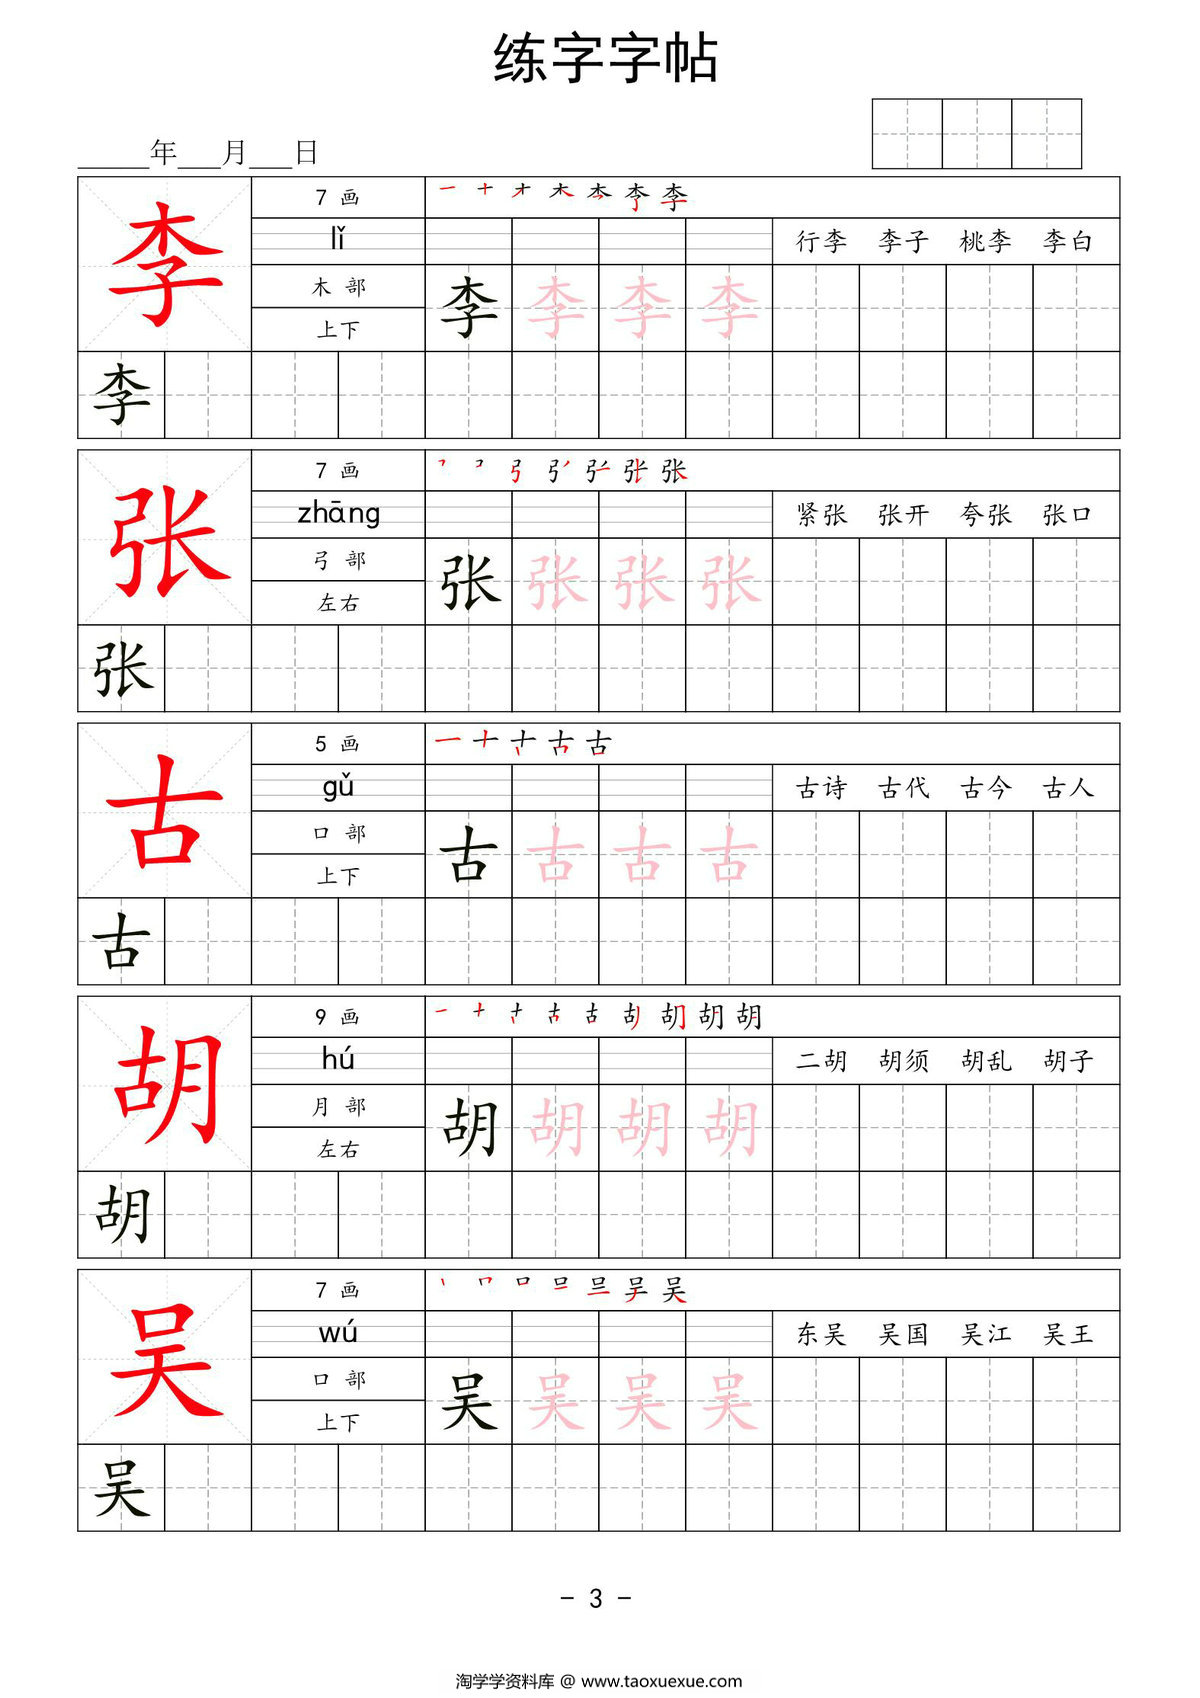 练字字帖
______年___月___日
李 7 画 一 十 オ 木 杢 李 李
lǐ 行李 李子 桃李 李白
木 部 李 李 李 李
上下
李
张 7 画 张
zhāng 紧张 张开 夸张 张口
弓 部 张 张 张 张
左右
张
古 5 画 一 十 古 古
gǔ 古诗 古代 古今 古人
口 部 古 古 古 古
上下
古
胡 9 画 一 十 古 胡 胡 胡
hú 二胡 胡须 胡乱 胡子
月 部 胡 胡 胡 胡
左右
胡
吴 7 画 口 吴 吴
wú 东吴 吴国 吴江 吴王
口 部 吴 吴 吴 吴
上下
吴
- 3 -
淘学学资料库 @ www.taoxuexue.com